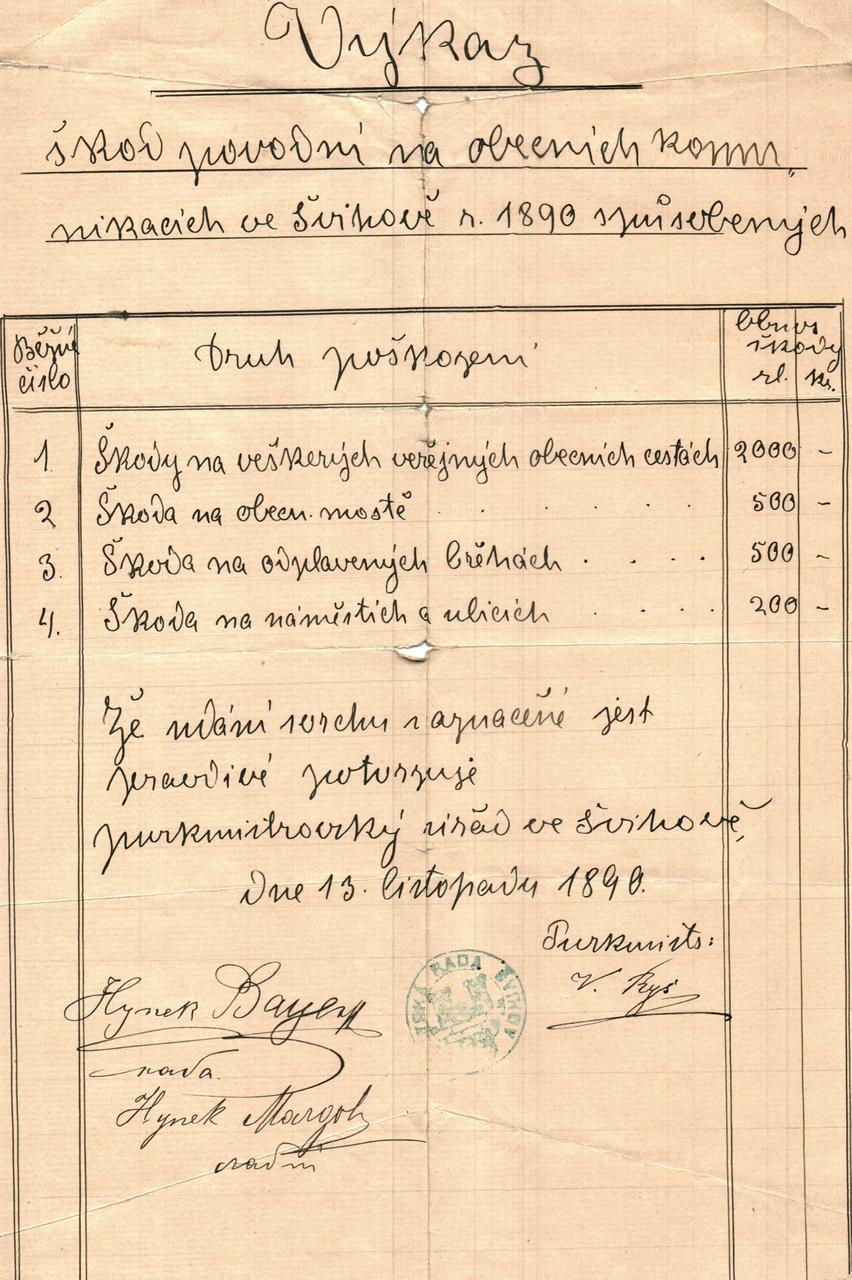 Výkaz
škod povodní na obecních komu„
nikacích ve Švihově r. 1890 spůsobených
Běžné číslo
Druh poškození
Obnos škody
zl. kr.
1. Škody na veškerých veřejných obecních cestách 2000 -
2 Škoda na obecn. mostě . . . . . . 500 -
3. Škoda na odplavených břěhách . . . . 500 -
4. Škoda na náměstích a ulicích . . . . 200 -
Že udání svrchu naznačené jest
pravdivé potvrzuje
purkmistrovský úřad ve Švihově,
dne 13. listopadu 1890.
Purkmistr:
V. Ryš
RADA ŠVIHOV
Hynek Bayer
rada.
Hynek
radní